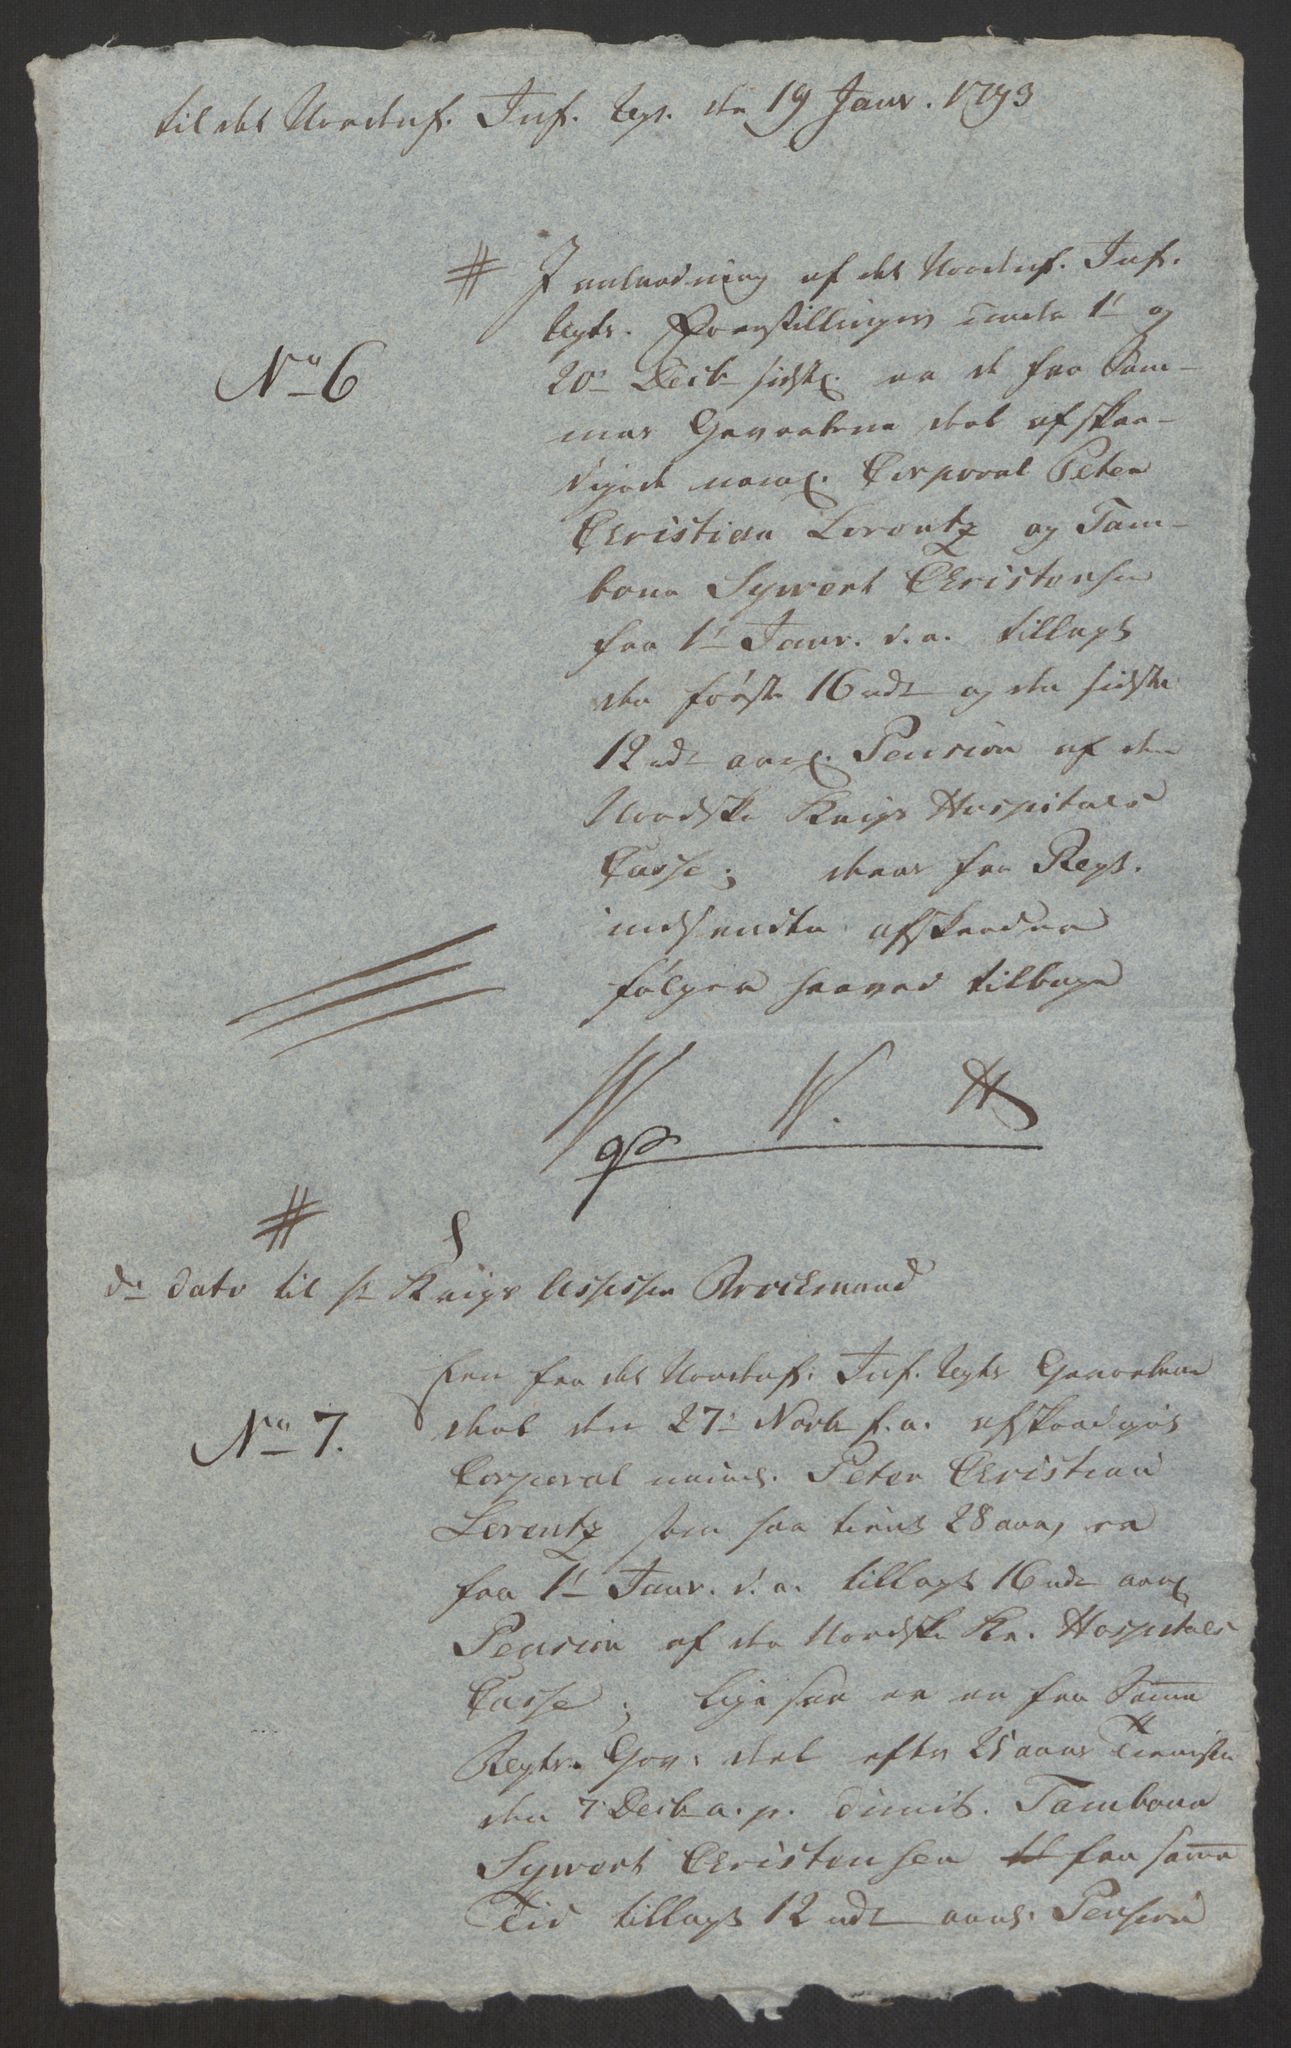 til det Nordenf. Inf. Regt. den 19 Janr. 1793
# I anledning af det Nordenf. Inf.
Regts. Forestillinger under 1' og
No 6
20' Decb sidstl. er de fra Sam-
mes Gevorbene deel afskee-
digede navnl. Corporal Peter
Christian Lorentz og Tam-
bour Sywert Christensen
fra 1' Janr. d. a. tillagt
den første 16 rdr og den sidste
12 rdr aarl. Pension af den
Norske Krigs Hospitals
Casse; deres fra Regt.
indsendte afskeeder
følger herved tilbage
W W. H
#
dn dato til hr Krigs Assessor Brockmand
Een fra det Nordenf. Inf. Regts Gevorbene
No 7.
deel den 27' Novb f. a. afskeediget
Corporal navnl. Peter Christian
Lorentz som har tient 28 aar, er
fra 1' Janr. d. a. tillagt 16 rdr aarl
Pension af den Norske Kr. Hospitals
Casse; ligesaa er en fra Samme
Regts. Gev: deel efter 25 aars Tieniste
den 7' Decb a. p. dimit. Tambour
Sywert Christensen fra samme
Tid tillagt 12 rdr aarl. Pension